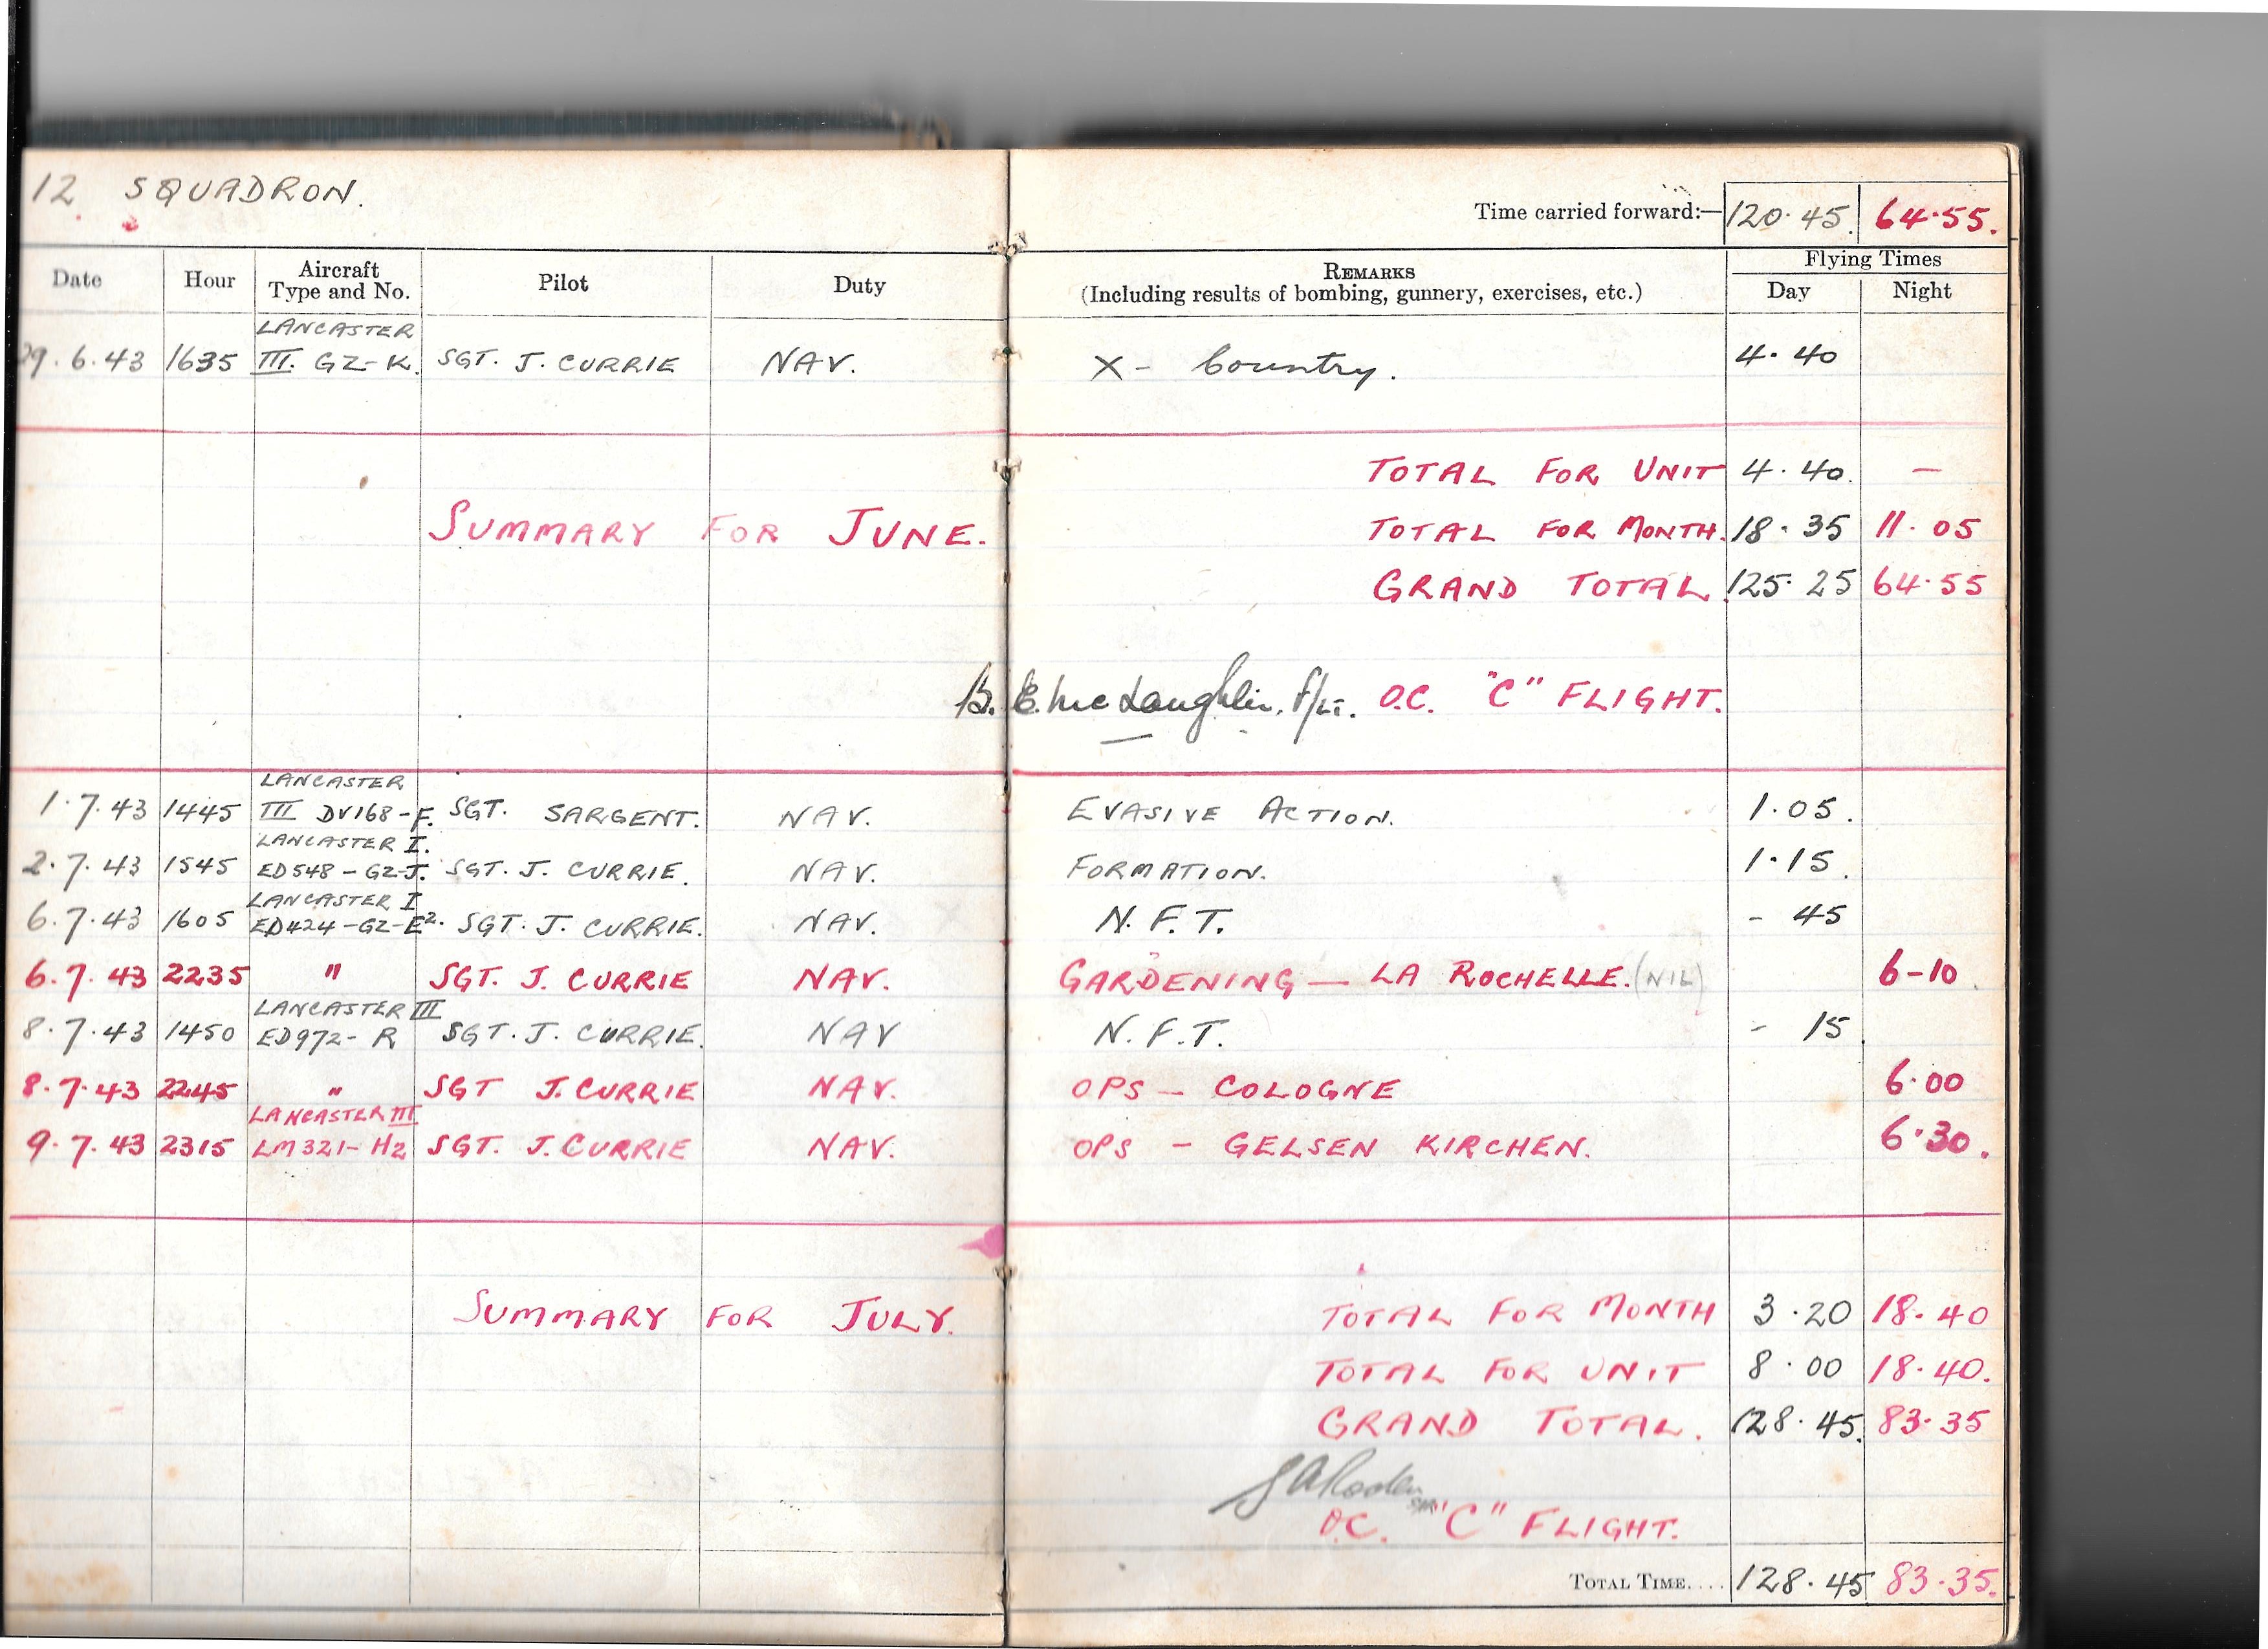 12 SQUADRON.
Time carried forward:— 120.45. 64.55.
Date Hour Aircraft Type and No. Pilot Duty REMARKS (Including results of bombing, gunnery, exercises, etc.) Flying Times Day Night
LANCASTER
29.6.43 1635 III. GZ-K. SGT. J. CURRIE NAV. X - Country. 4.40
TOTAL FOR UNIT 4.40. —
SUMMARY FOR JUNE. TOTAL FOR MONTH. 18.35 11.05
GRAND TOTAL. 125.25 64.55
B. E. McLaughlin. F/Lt. O.C. "C" FLIGHT.
LANCASTER
1.7.43 1445 III DV168-F. SGT. SARGENT. NAV. EVASIVE ACTION. 1.05.
LANCASTER I.
2.7.43 1545 ED548-GZ-J. SGT. J. CURRIE. NAV. FORMATION. 1.15.
LANCASTER I
6.7.43 1605 ED424-GZ-E2. SGT. J. CURRIE. NAV. N.F.T. - 45
6.7.43 2235 " SGT. J. CURRIE NAV. GARDENING — LA ROCHELLE. (NIL) 6-10.
LANCASTER III
8.7.43 1450 ED972-R SGT. J. CURRIE. NAV N.F.T. - 15.
8.7.43 2245 " SGT J. CURRIE NAV. OPS — COLOGNE 6.00
LANCASTER III
9.7.43 2315 LM321-H2 SGT. J. CURRIE NAV. OPS - GELSEN KIRCHEN. 6.30.
SUMMARY FOR JULY. TOTAL FOR MONTH 3.20 18.40
TOTAL FOR UNIT 8.00 18.40.
GRAND TOTAL. 128.45. 83.35
O.C. "C" FLIGHT.
TOTAL TIME.... 128.45 83.35.